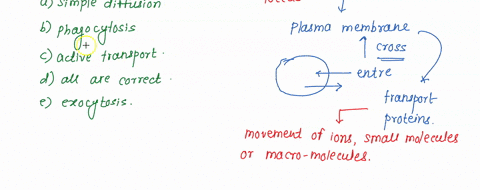 a) simple diffusion
b) phagocytosis
c) active transport.
d) all are correct.
e) exocytosis.
plasma membrane
cross
entre
transport
proteins.
movement of ions, small molecules
or macro-molecules.